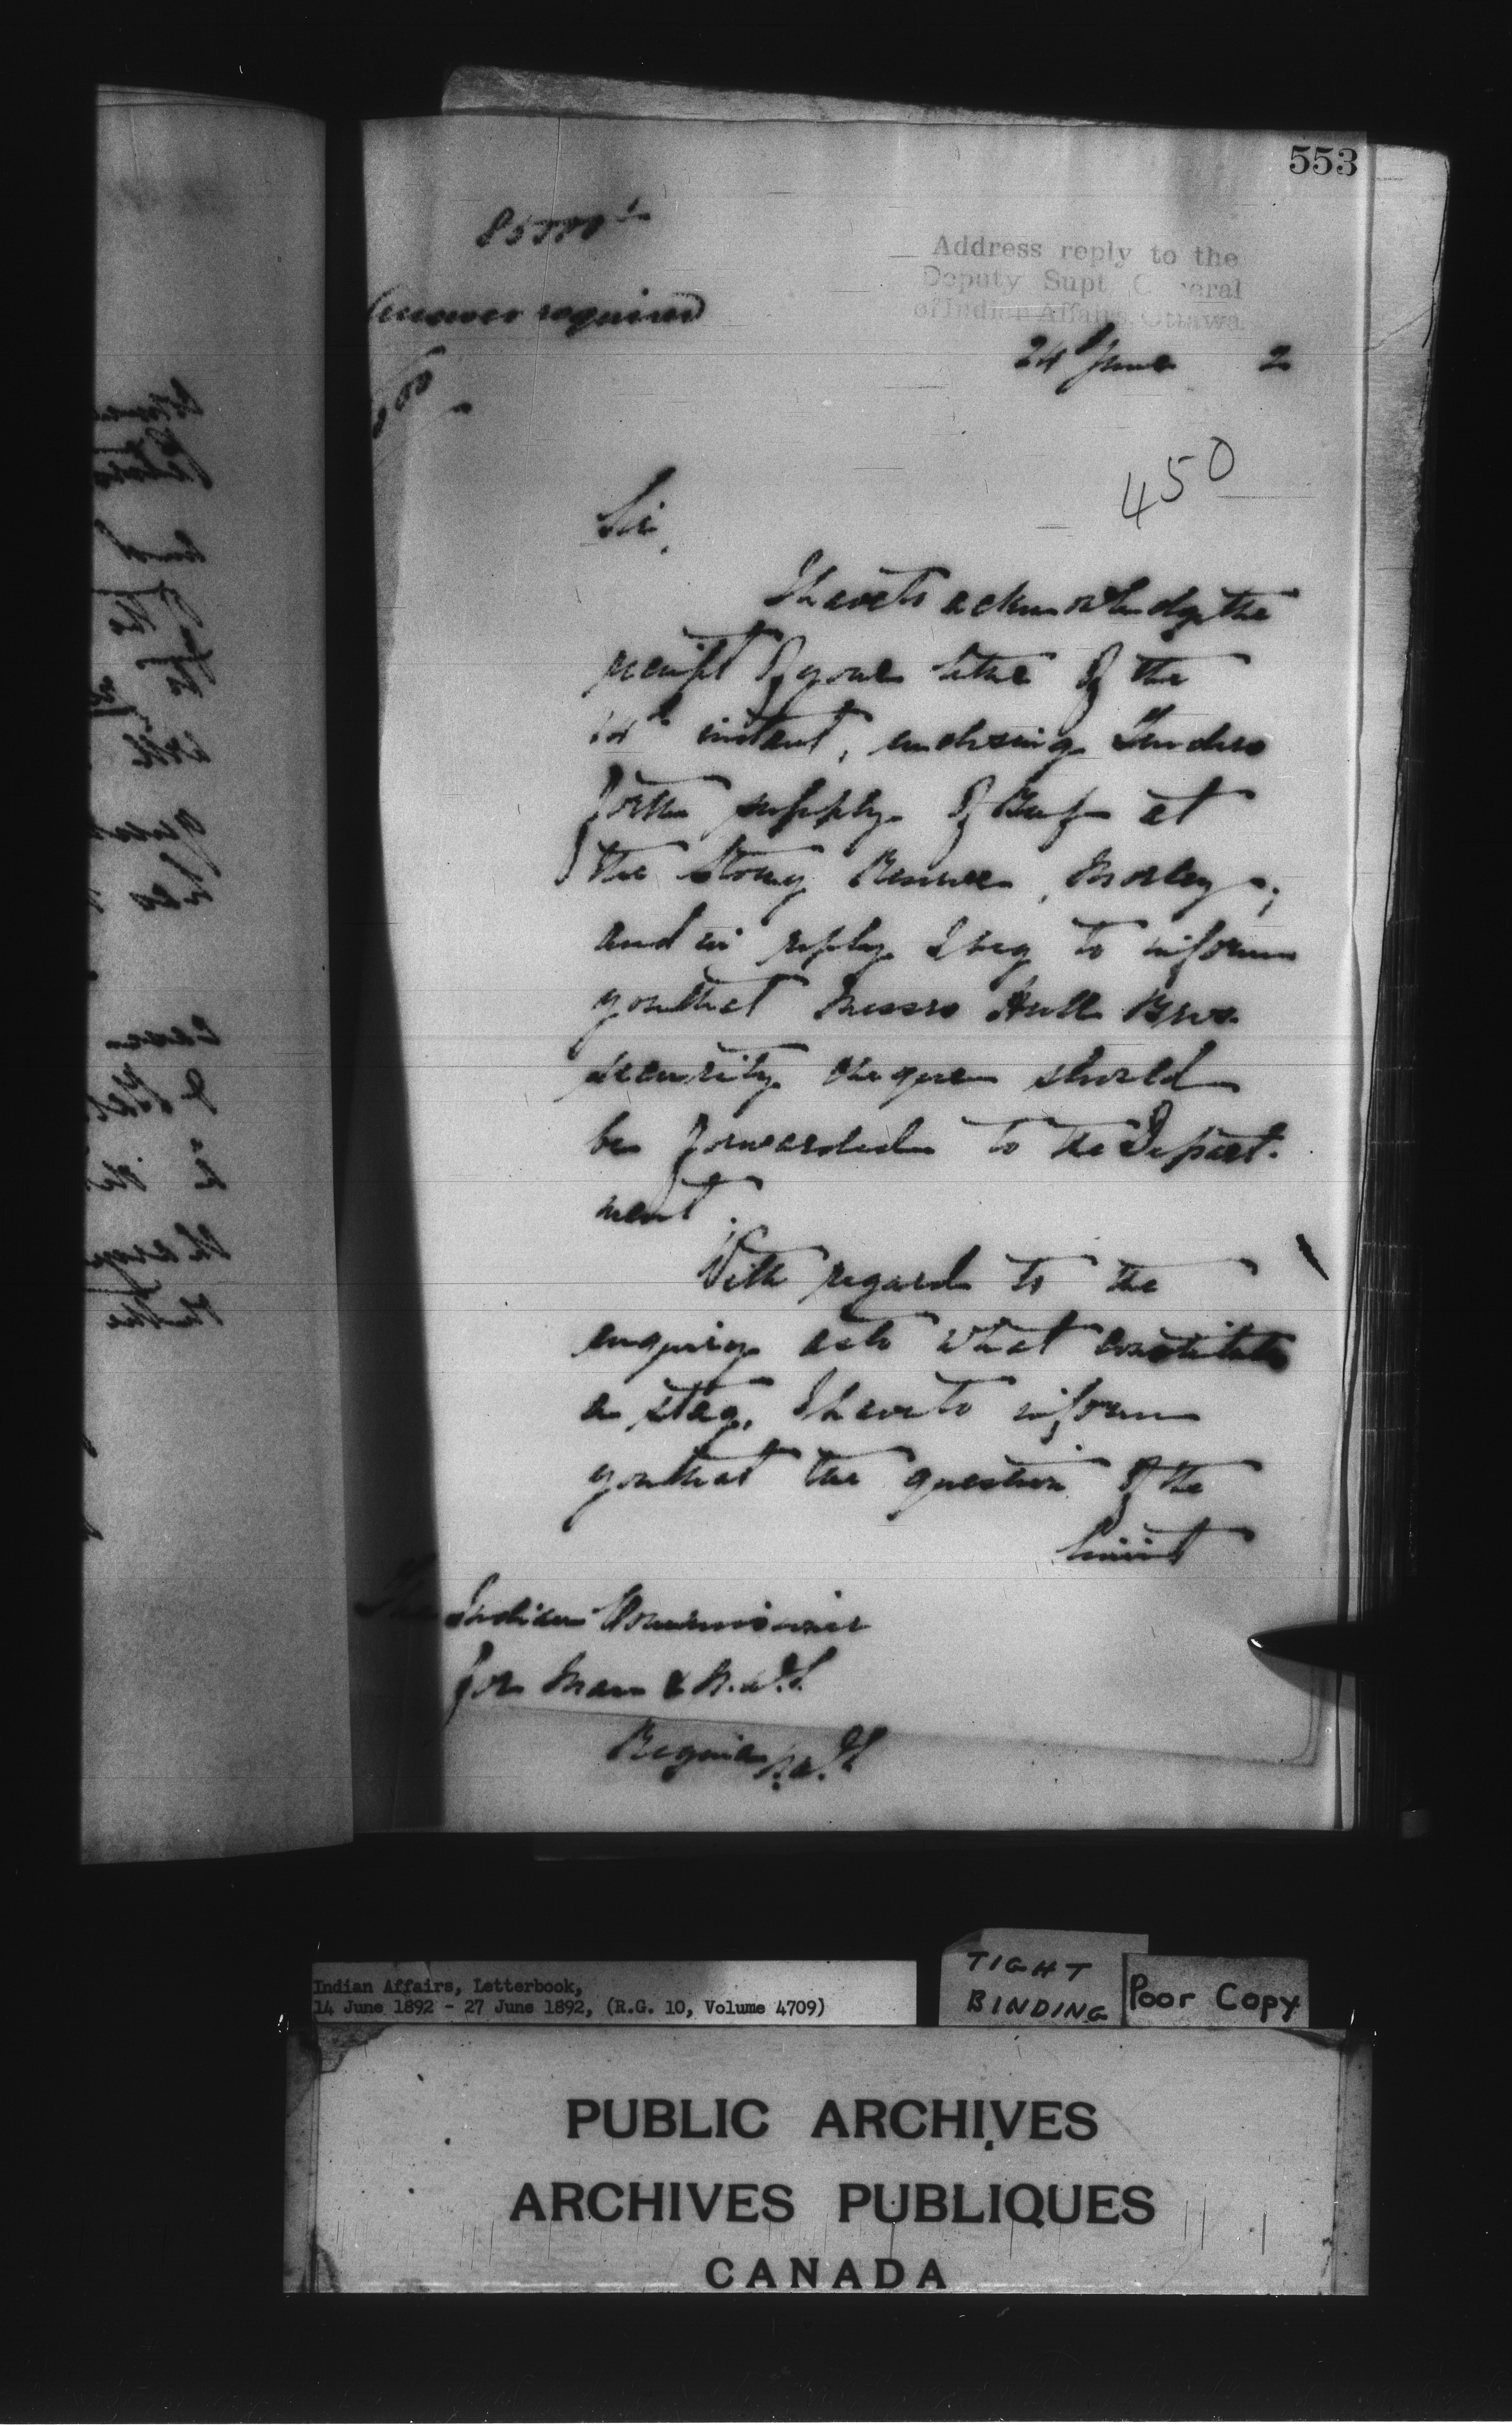 553
Address reply to the
Deputy Supt. General
of Indian Affairs, Ottawa.
Answer required
24th June 2
450
Sir,
I have to acknowledge the
receipt of your letter of the
14th instant, enclosing Tenders
for the supply of Beef at
the Stony Reserve, Morley;
and in reply I beg to inform
you that Messrs Hull Bros.
security cheque should
be forwarded to the Depart-
ment.
With regard to the
enquiry as to what constitutes
a stag, I have to inform
you that the question of the
limit
The Indian Commissioner
for Man & N.W.T.
Regina N.W.T.
Indian Affairs, Letterbook,
14 June 1892 - 27 June 1892, (R.G. 10, Volume 4709)
TIGHT
BINDING
Poor Copy
PUBLIC ARCHIVES
ARCHIVES PUBLIQUES
CANADA